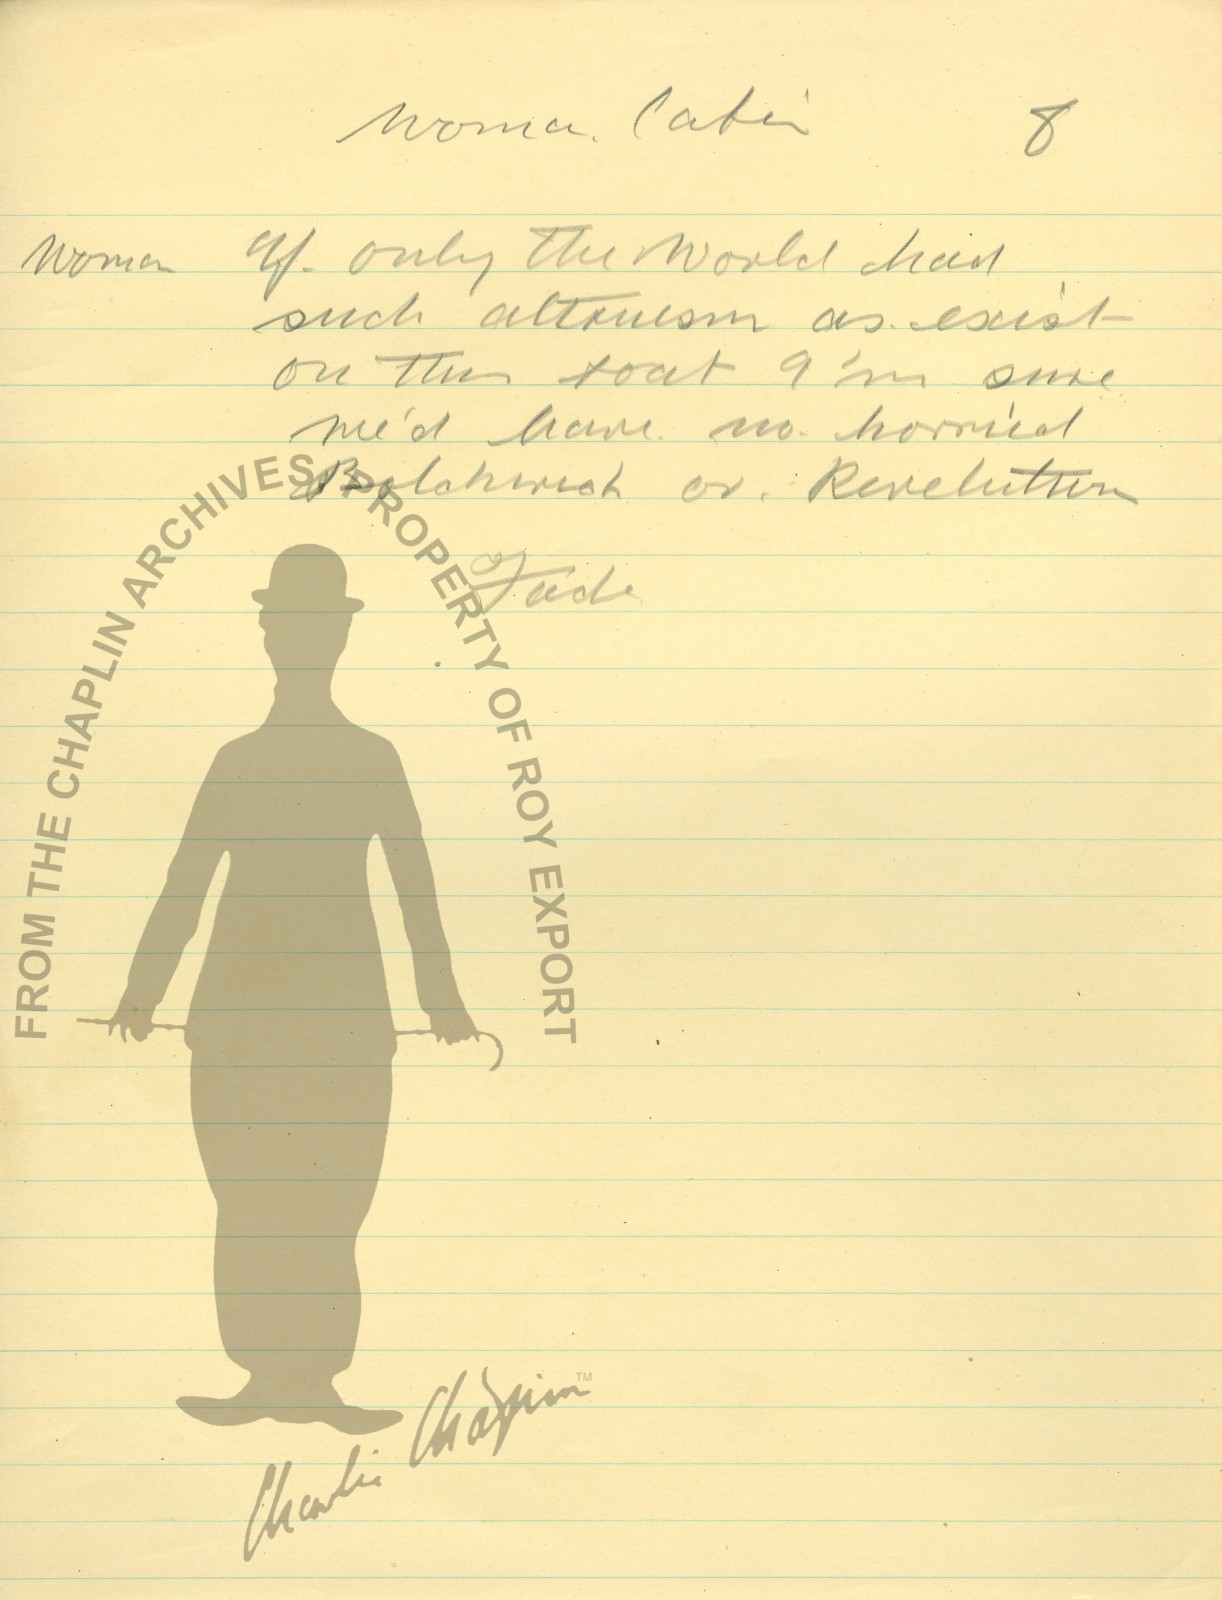 Woman. Cabin 8
Woman If only the World had
such altruism as exist
on this boat I'm sure
we'd have no horried
or. Revolution
Fade
FROM THE CHAPLIN ARCHIVES. PROPERTY OF ROY EXPORT
Charlie Chaplin TM